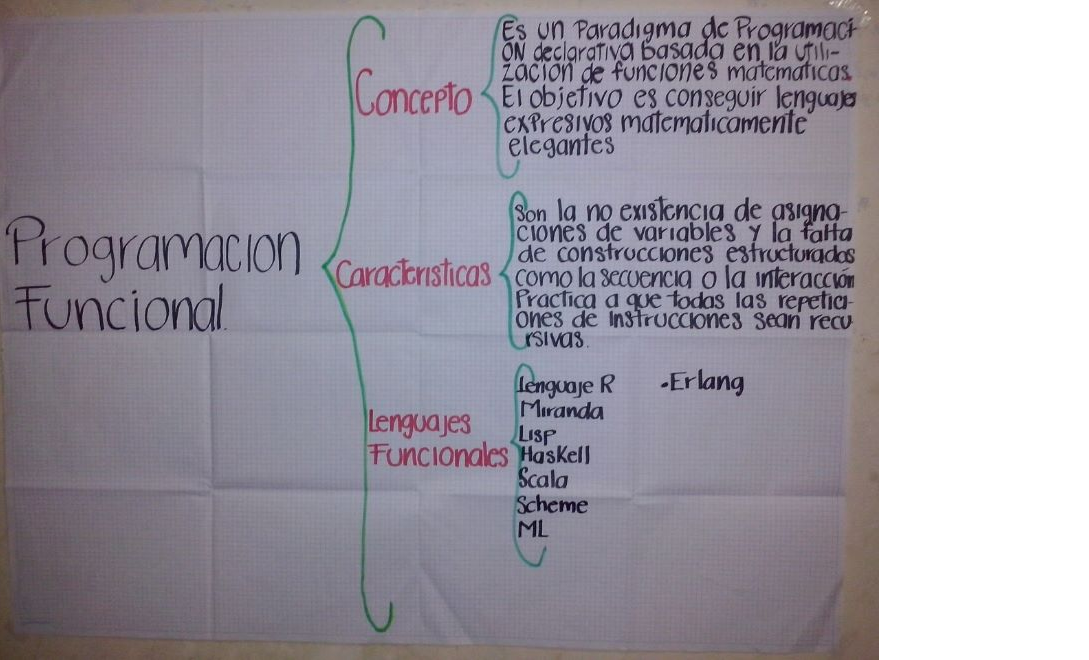 Programacion
Funcional.
Concepto
Es un Paradigma de Programaci-
ON declarativa basada en la utili-
zación de funciones matematicas.
El objetivo es conseguir lenguajes
expresivos matematicamente
elegantes
Caracteristicas
Son la no existencia de asigna-
ciones de variables y la falta
de construcciones estructurados
como la secuencia o la interacción
Practica a que todas las repetici-
ones de instrucciones sean recu
rsivas.
Lenguajes
Funcionales
Lenguaje R
•Erlang
Miranda
Lisp
Haskell
Scala
Scheme
ML